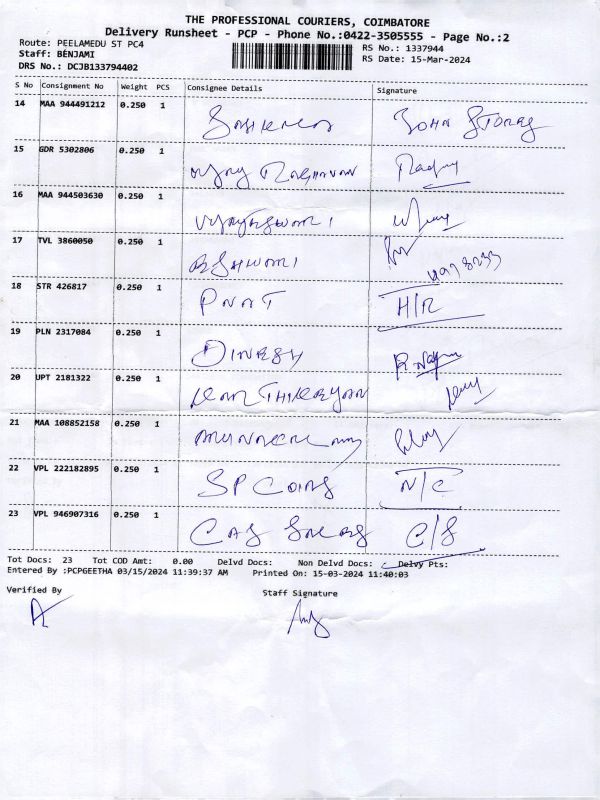 THE PROFESSIONAL COURIERS, COIMBATORE
Delivery Runsheet - PCP - Phone No.:0422-3505555 - Page No.:2
Route: PEELAMEDU ST PC4 RS No.: 1337944
Staff: BENJAMI RS Date: 15-Mar-2024
DRS No.: DCJB133794402
S No Consignment No Weight PCS Consignee Details Signature
14 MAA 944491212 0.250 1 JOHN STORES
15 GDR 5302806 0.250 1 RAGHAVAN
16 MAA 944503630 0.250 1
17 TVL 3860050 0.250 1 ESHWARI
18 STR 426817 0.250 1 H/R
19 PLN 2317084 0.250 1 DINESH
20 UPT 2181322 0.250 1
21 MAA 108852158 0.250 1
22 VPL 222182895 0.250 1 SP COINS N/C
23 VPL 946907316 0.250 1 C/S
Tot Docs: 23 Tot COD Amt: 0.00 Delvd Docs: Non Delvd Docs: Delvy Pts:
Entered By :PCPGEETHA 03/15/2024 11:39:37 AM Printed On: 15-03-2024 11:40:03
Verified By Staff Signature